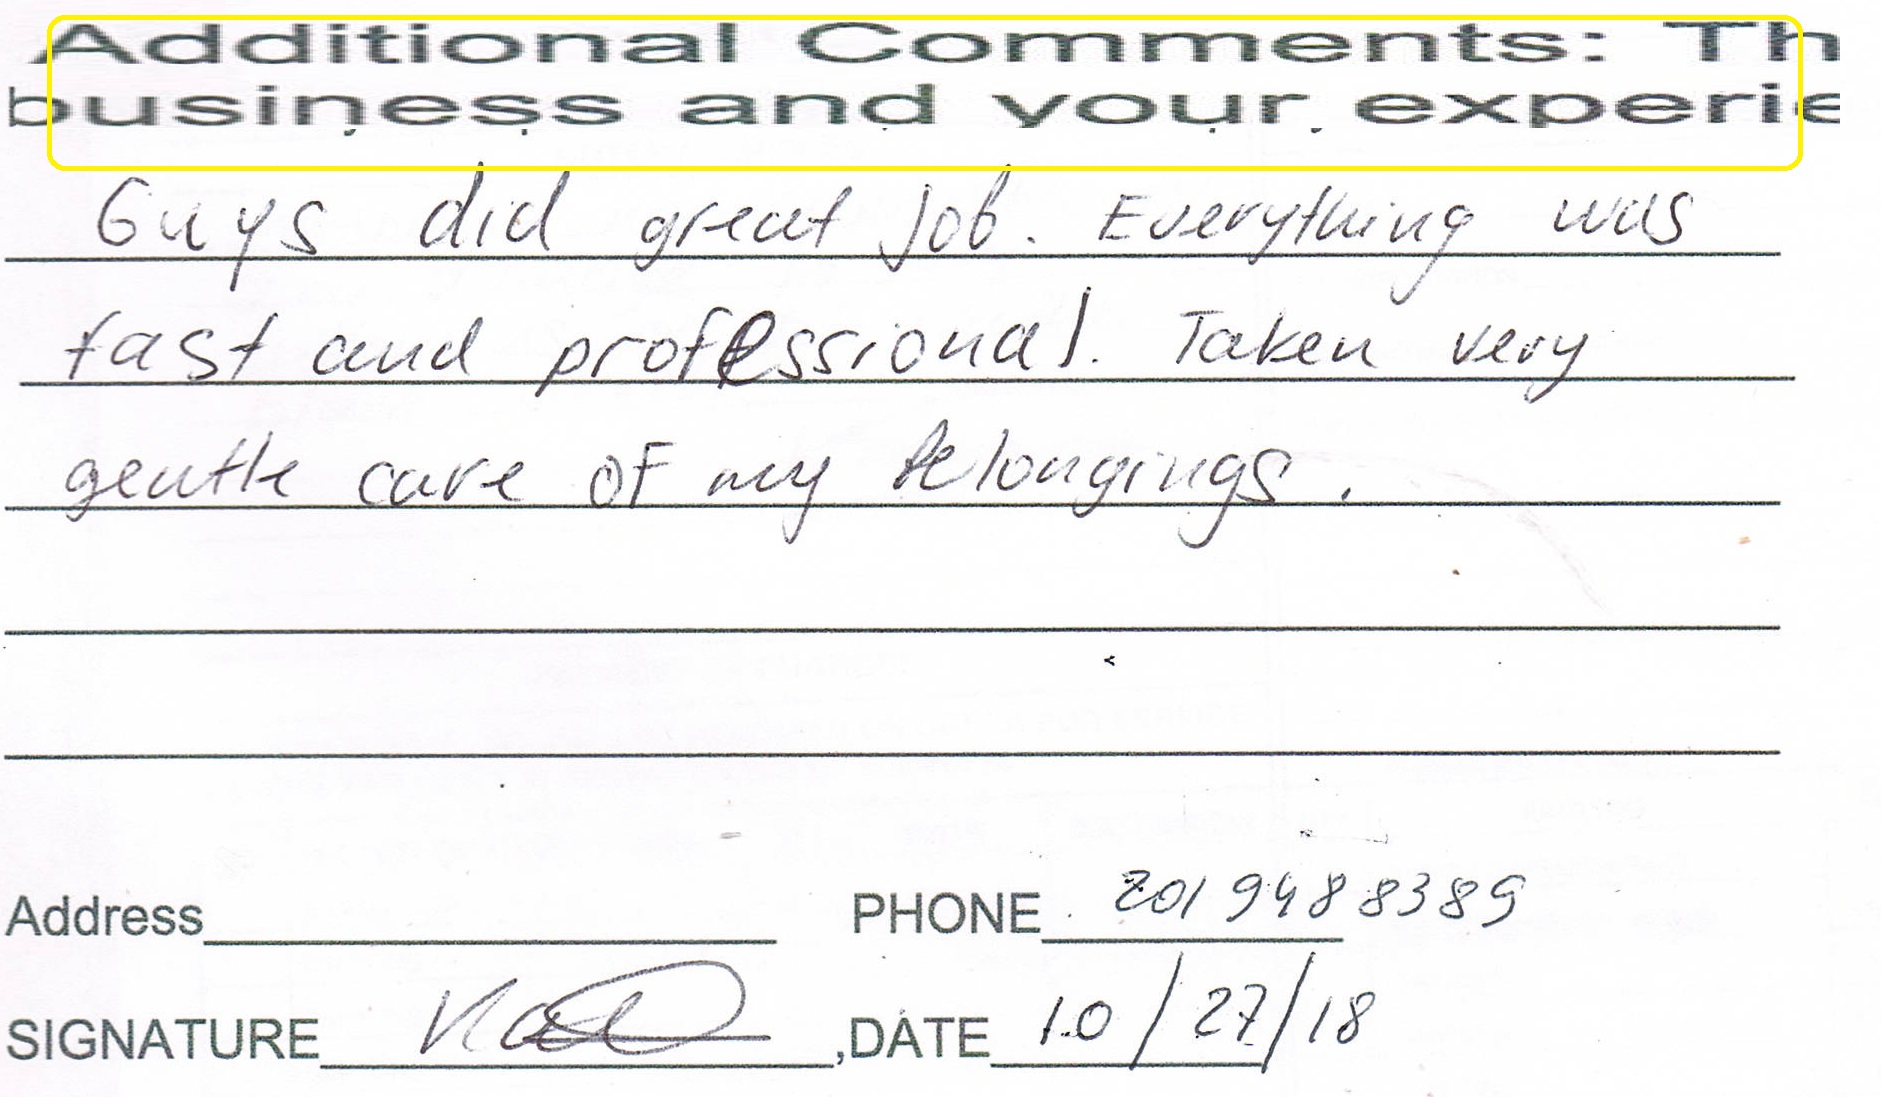 Additional Comments: Th
business and your experie
Guys did great job. Everything was
fast and professional. Taken very
gentle care of my belongings.
Address PHONE 2019488389
SIGNATURE ,DATE 10/27/18